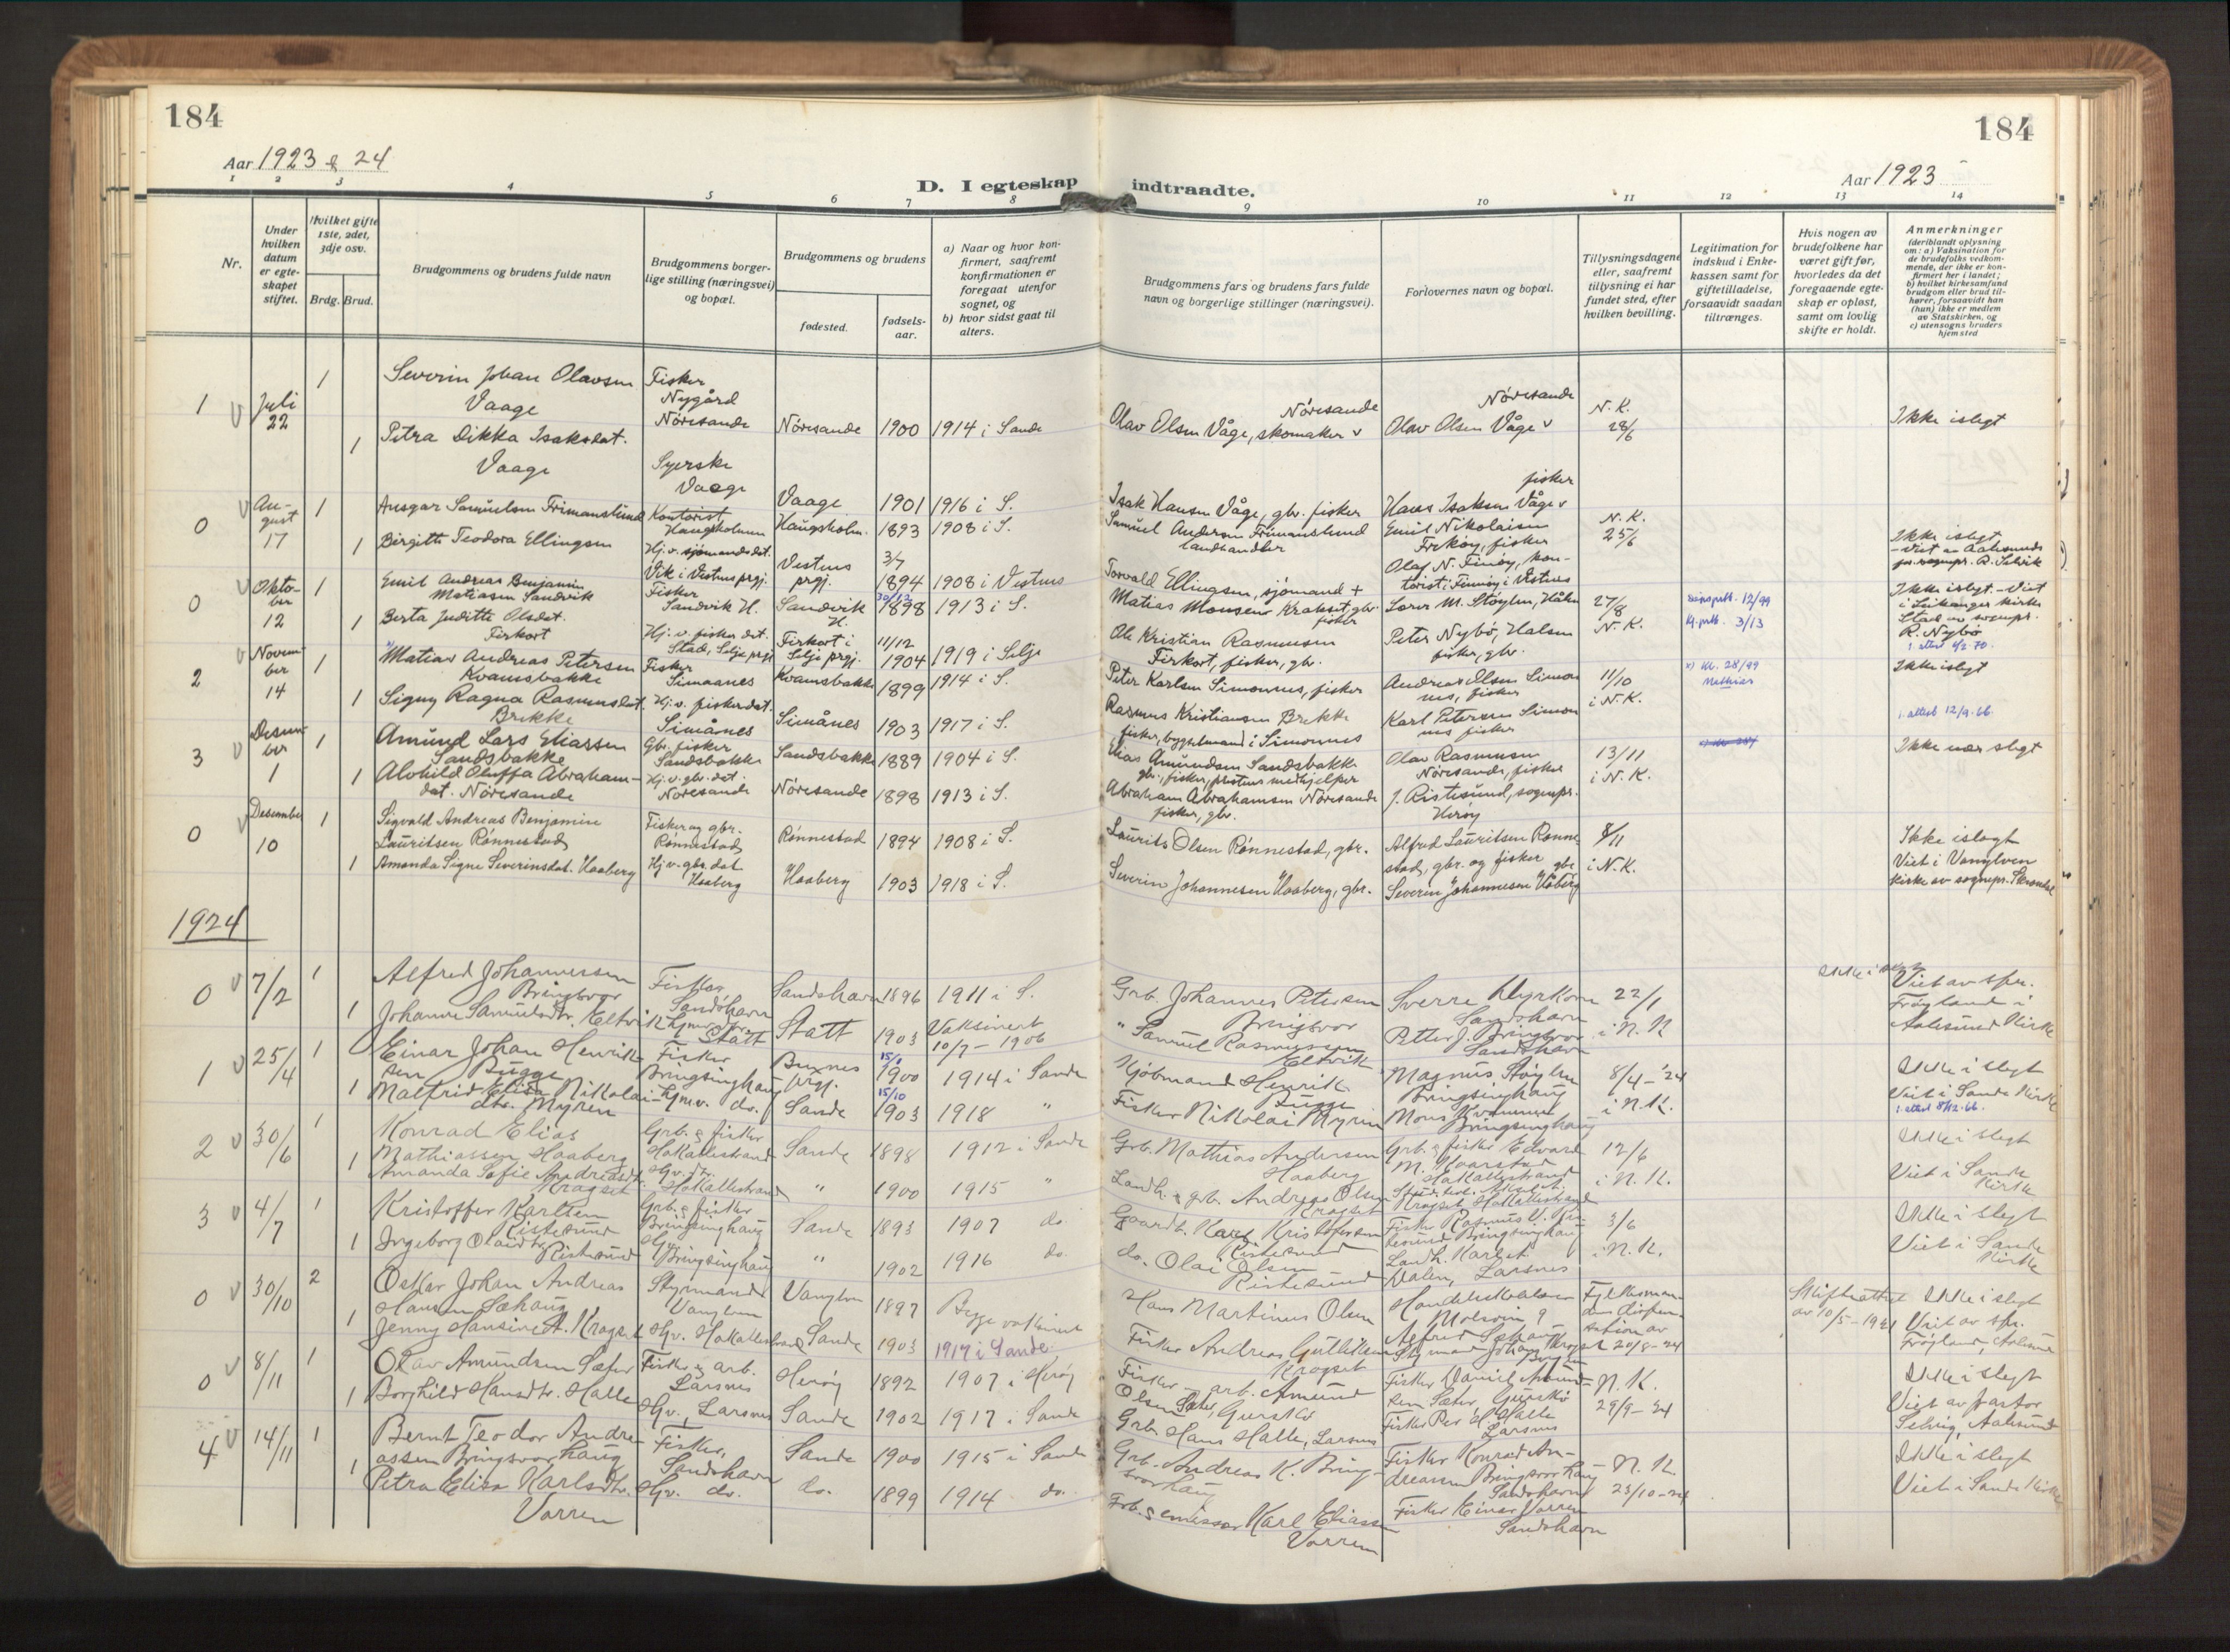 184
184
Aar 1923 & 24
Aar 1923
D. I egteskap indtraadte.
1 2 3 4 5 6 7 8 9 10 11 12 13 14
Nr.
Under hvilken datum er egteskapet stiftet.
Hvilket gifte 1ste, 2det, 3dje osv.
Brdg. Brud.
Brudgommens og brudens fulde navn
Brudgommens borgerlige stilling (næringsvei) og bopæl.
Brudgommens og brudens
fødested.
fødselsaar.
a) Naar og hvor konfirmert, saafremt konfirmationen er foregaat utenfor sognet, og
b) hvor sidst gaat til alters.
Brudgommens fars og brudens fars fulde navn og borgerlige stillinger (næringsvei).
Forlovernes navn og bopæl.
Tillysningsdagene eller, saafremt tillysning ei har fundet sted, efter hvilken bevilling.
Legitimation for indskud i Enkekassen samt for giftetilladelse, forsaavidt saadan tiltrænges.
Hvis nogen av brudefolkene har været gift før, hvorledes da det foregaaende egteskap er opløst, samt om lovlig skifte er holdt.
Anmerkninger
(deriblandt oplysning om: a) Vaksination for de brudefolks vedkommende, der ikke er konfirmert her i landet;
b) hvilket kirkesamfund brudgom eller brud tilhører, forsaavidt han (hun) ikke er medlem av Statskirken, og
c) utensogns bruders hjemsted
1 Juli 22 1 Severin Johan Olavsen Vaage Fisker Nygård Nøresande Nøresande 1900 1914 i Sande Olav Olsen Våge, skomaker Nøresande Olav Olsen Våge Nøresande N. K. 28/6 Ikke i slegt
1 Petra Dikka Isaksdat. Vaage Syerske Vaage Vaage 1901 1916 i S. Isak Hansen Våge, gbr. fisker Hans Isaksen Våge fisker
0 August 17 1 Ansgar Samuelsen Frimanslund Kontorist Haugsholmen Haugsholm. 1893 1908 i S. Samuel Andersen Frimanslund landhandler Emil Nikolaisen Frekøy, fisker N. K. 25/6 Ikke i slegt - Viet i Aalesund
1 Birgitte Teodora Ellingsen Hj. v. sjømandsdat. Vik i Vestnes prgj. Vestnes prgj. 3/7 1894 1908 i Vestnes Torvald Ellingsen, sjømand + Olaf N. Finøy, kontorist, Finnøy i Vestnes
0 Oktober 12 1 Emil Andreas Benjamin Matiasen Sandvik Fisker Sandvik H. Sandvik H. 30/12 1898 1913 i S. Matias Monsen Krakset, gbr. fisker M. Støylen, 27/8 N. K. 12/99 Ikke i slegt. - Viet i Leikanger kirke
1 Berta Juditte Olsdat. Firkort Hj. v. fisker dat. Stad, Selje prgj. Firkort i Selje prgj. 11/12 1904 1919 i Selje Ole Kristian Rasmusen Firkort, fisker, gbr. Peter Nybø, Halsen fisker, gbr. 3/13 Stad av sognepr. R. Nybø
2 November 14 1 Matias Andreas Petersen Kvamsbakke Fisker Simaanes Kvamsbakke 1899 1914 i S. Peter Karlsen Simonnes, fisker Andreas Olsen Simonnes, fisker 11/10 i N. K. 28/99 Mathias Ikke i slegt
1 Signy Ragna Rasmusdat. Brekke Hj. v. fiskerdat. Simånes Simånes 1903 1917 i S. Rasmus Kristiansen Brekke fisker, bygselmand i Simonnes Karl Petersen Simonnes fisker 1. attest 12/9-66.
3 Desember 1 1 Amund Lars Eliassen Sandsbakke Gbr. fisker Sandsbakke Sandsbakke 1889 1904 i S. Elias Amundsen Sandsbakke gbr., fisker, prestens medhjelper Olav Rasmusen Nøresande, fisker 13/11 i N. K. Ikke nær slegt
1 Alvhild Oluffa Abrahamdat. Nøresande Hj. v. gbr. dat. Nøresande Nøresande 1898 1913 i S. Abraham Abrahamsen Nøresande fisker, gbr. J. Ristesund, sognepr. Herøy
0 Desember 10 1 Sigvald Andreas Benjamin Lauritsen Rønnestad Fisker og gbr. Rønnestad Rønnestad 1894 1908 i S. Laurits Olsen Rønnestad, gbr. Alfred Lauritsen Rønnestad, gbr. og fisker 8/11 i N. K. Ikke i slegt Viet i Vanylven kirke av sognepr.
1 Amanda Signe Severinsdat. Haaberg Hj. v. gbr. dat Haaberg Haaberg 1903 1918 i S. Severin Johannesen Haaberg, gbr. Severin Johannesen Håberg gbr.
1924
0 7/2 1 Alfred Johannessen Bringsvor Fisker Sandshavn Sandshavn 1896 1911 i S. Grb. Johannes Petersen Bringsvor Sverre Dyrkorn Sandshavn 22/1 i N. K Ikke i slegt Viet av spr. Frøyland i Aalesund Kirke
1 Johanne Samuelsdtr. Eltvik Hjmv. Statt Statt 1903 Vaksinert 10/7 - 1906 " Samuel Rasmussen Eltvik Petter J. Bringsvor Sandshavn
1 25/4 1 Einar Johan Henriksen Bugge Fisker Bringsinghaug Buxnes prgj. 15/1 1900 1914 i Sande Kjöbmand Henrik Bugge Magnus Støylen Bringsinghaug 8/4 - '24 i N. K. Ikke i slegt Viet i Sande Kirke
1 Malfrid Elisa Nikolaidtr. Myren Hjmv. do. Sande 15/10 1903 1918 " Fisker Nikolai Myren Mons Kvamme Bringsinghaug
2 30/6 1 Konrad Elias Mathiassen Haaberg Grb. & fisker Hakallestrand Sande 1898 1912 i Sande Grb. Mathias Andersen Haaberg Grb. & fisker Edvard M. Haarstad Hakallestrand 12/6 i N. K. Ikke i slegt Viet i Sande Kirke
1 Amanda Sofie Andreasdt. Kragset Hakallestrand " 1900 1915 " Landh. & grb. Andreas Olsen Kragset Kragset, Hakallestrand
3 4/7 1 Kristoffer Karlsen Ristesund Grb. & fisker Bringsinghaug Sande 1893 1907 do. Gaardbr. Karl Kristoffersen Ristesund Fisker Rasmus Bringsinghaug 3/6 i N. K. Ikke i slegt Viet i Sande Kirke
1 Ingeborg Olaidtr. Ristesund Hjv. Bringsinghaug " 1902 1916 do. do. Olai Olsen Ristesund Landh. Karl Valen, Larsnes
0 30/10 2 Oskar Johan Andreas Hansen Sæhaug Styrmand Vanylven Vanylven 1897 Begge vaksinert Hans Martinus Olsen Fylkesmannens dispensation av 20/8-24 Skifteattest av 10/5 - 1921 Ikke i slegt Viet av spr. Frøyland, Aalesund
1 Jenny Hansine A. Kragset Hjv. Hakallestrand Sande 1903 1917 i Sande Fisker Andreas Gulliksen Kragset Alfred Sæhaug
0 8/11 1 Olav Amundsen Sæter Fisker & arb. Larsnes Herøy 1892 1907 i Herøy Fisker - arb. Amund Olsen Sæter, Gurskö Fisker Daniel Amundsen Sæter, Gurskö N. K. 29/9 - 24 Ikke i slegt Viet av pastor Selvig, Aalesund
1 Borghild Hansdtr. Halle Hjv. Larsnes Sande 1902 1917 i Sande Grb. Hans Halle, Larsnes Fisker Per H. Halle Larsnes
4 14/11 1 Bernt Teodor Andreassen Bringsvorhaug Fisker, Sandshavn Sande 1900 1915 i Sande Grb. Andreas K. Bringsvorhaug Fisker Konrad Andreassen Bringsvorhaug Sandshavn N. K. 23/10 - 24 Ikke i slegt Viet i Sande Kirke
1 Petra Elisa Karlsdtr. Vorren Hjv. do. do. 1899 1914 do. Grb. & emissær Karl Eliassen Vorren Fisker Einar Vorren Sandshavn